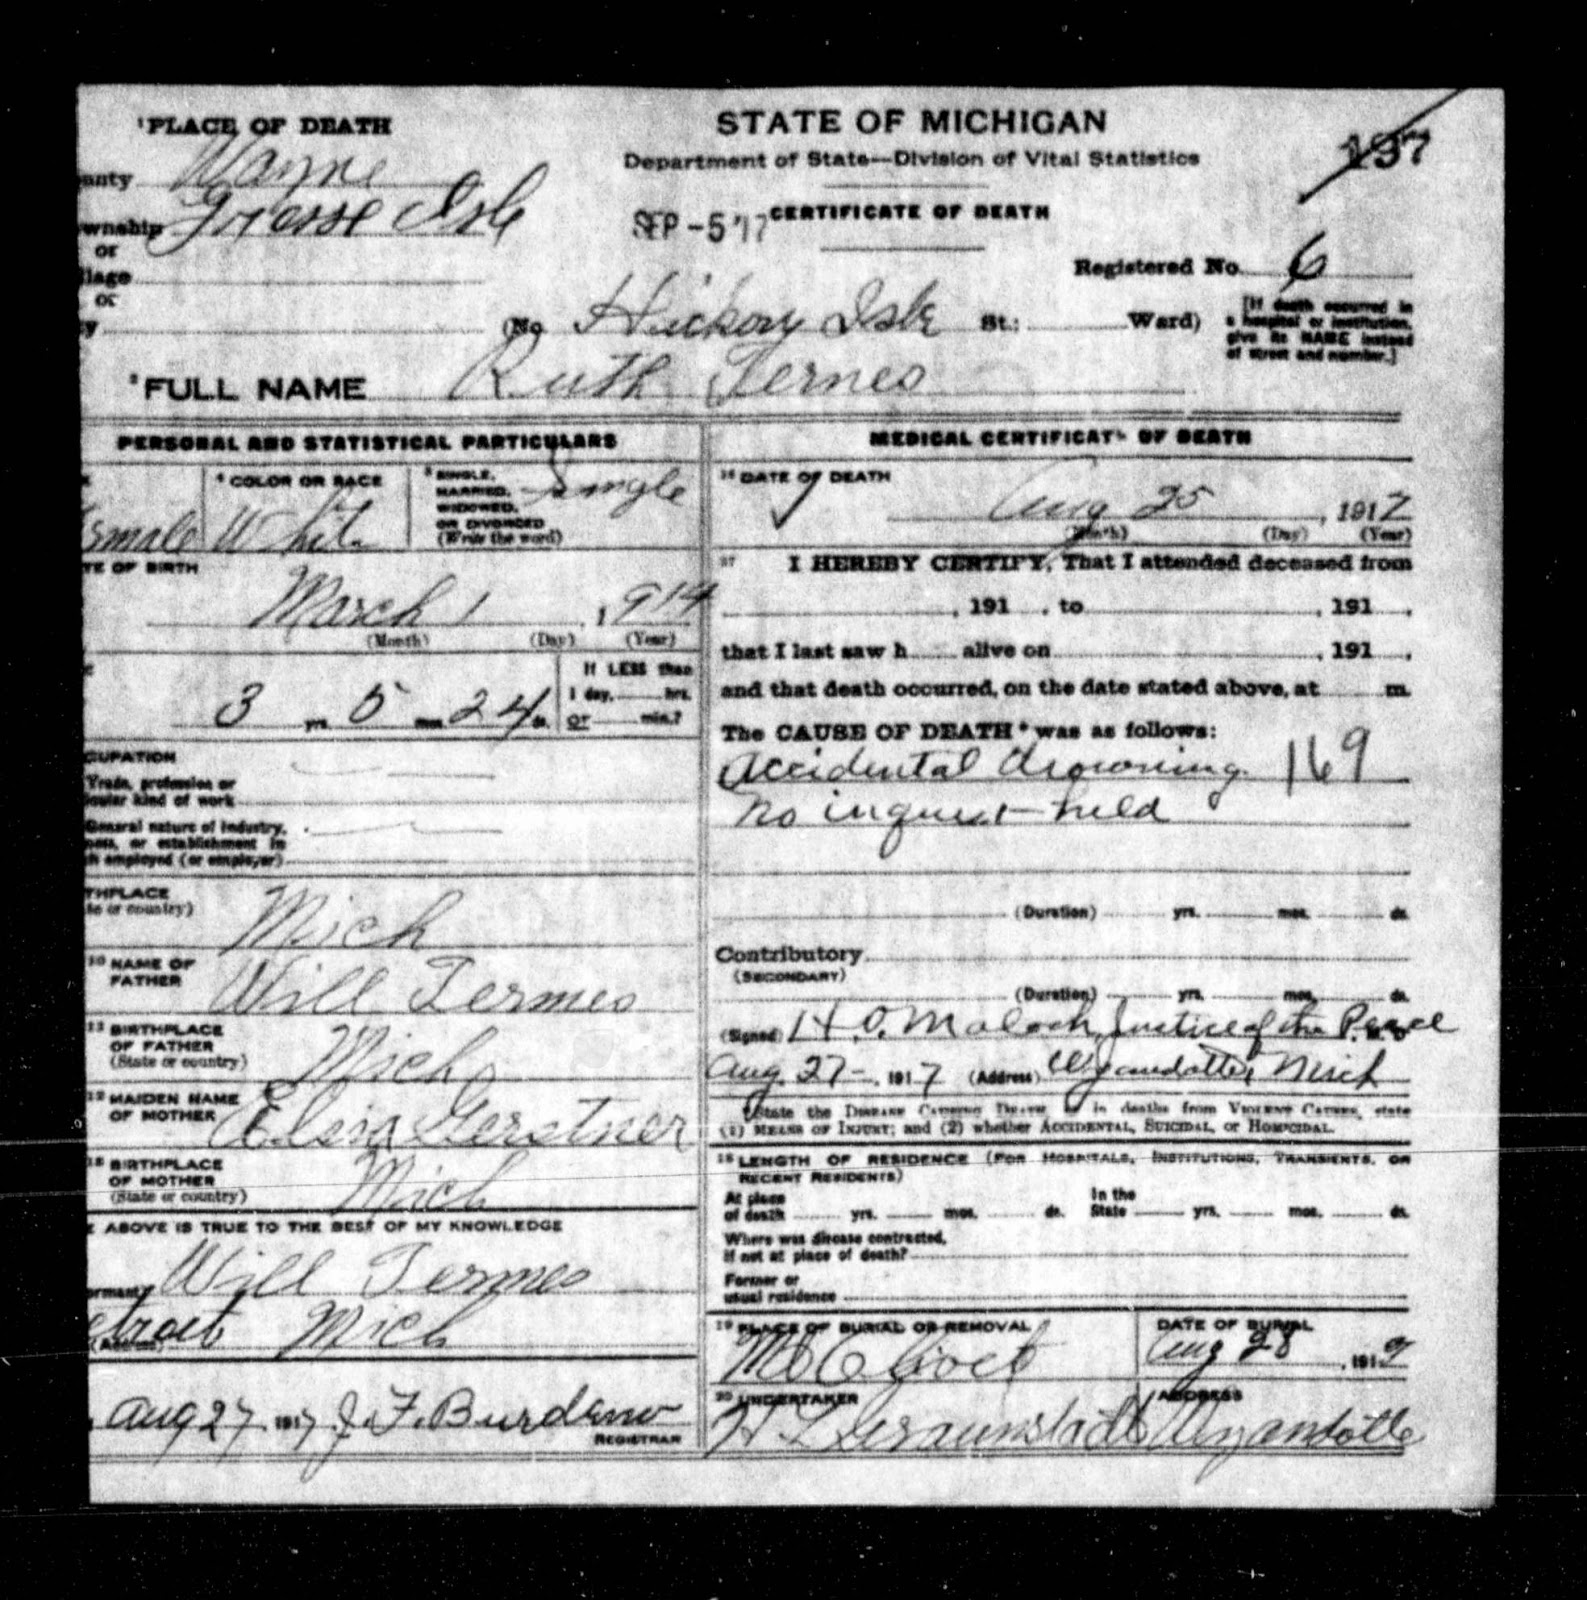 ¹PLACE OF DEATH
unty Wayne
wnship Grosse Isle
or
llage
or
y
STATE OF MICHIGAN
Department of State—Division of Vital Statistics
SEP -5 '17 CERTIFICATE OF DEATH
137
Registered No. 6
(No. Hickory Isle St.; Ward)
[If death occurred in
a hospital or institution,
give its NAME instead
of street and number.]
²FULL NAME Ruth Ternes
PERSONAL AND STATISTICAL PARTICULARS
⁴ COLOR OR RACE
⁵ SINGLE,
MARRIED,
WIDOWED,
OR DIVORCED
(Write the word)
Single
emale White
TE OF BIRTH
March 1, 1914
(Month) (Day) (Year)
3 yrs. 5 mos. 24 ds.
If LESS than
1 day, hrs.
or min.?
CUPATION
Trade, profession or
cular kind of work
General nature of industry,
ness, or establishment in
h employed (or employer)
THPLACE
te or country)
Mich
10 NAME OF
FATHER
Will Ternes
11 BIRTHPLACE
OF FATHER
(State or country)
Mich
12 MAIDEN NAME
OF MOTHER
Gerstner
13 BIRTHPLACE
OF MOTHER
(State or country)
Mich
E ABOVE IS TRUE TO THE BEST OF MY KNOWLEDGE
ormant) Will Ternes
(Address) etroit Mich
Aug 27 1917 J. F. Burdeno
REGISTRAR
MEDICAL CERTIFICATE OF DEATH
16 DATE OF DEATH
Aug 25, 1917
(Month) (Day) (Year)
17 I HEREBY CERTIFY, That I attended deceased from
, 191 , to , 191 ,
that I last saw h alive on , 191 ,
and that death occurred, on the date stated above, at m.
The CAUSE OF DEATH* was as follows:
Accidental drowning. 169
No inquest held
(Duration) yrs. mos. ds.
Contributory
(SECONDARY)
(Duration) yrs. mos. ds.
(Signed) H. O. Maloch, Justice of the Peace
Aug. 27-, 1917 (Address) Wyandotte, Mich
*State the DISEASE CAUSING DEATH, or in deaths from VIOLENT CAUSES, state
(1) MEANS OF INJURY; and (2) whether ACCIDENTAL, SUICIDAL, OR HOMICIDAL.
18 LENGTH OF RESIDENCE (FOR HOSPITALS, INSTITUTIONS, TRANSIENTS, OR
RECENT RESIDENTS)
At place
of death yrs. mos. ds.
In the
State yrs. mos. ds.
Where was disease contracted,
if not at place of death?
Former or
usual residence
19 PLACE OF BURIAL OR REMOVAL
Mt Olivet
DATE OF BURIAL
Aug 28, 1917
20 UNDERTAKER
ADDRESS
Wyandotte